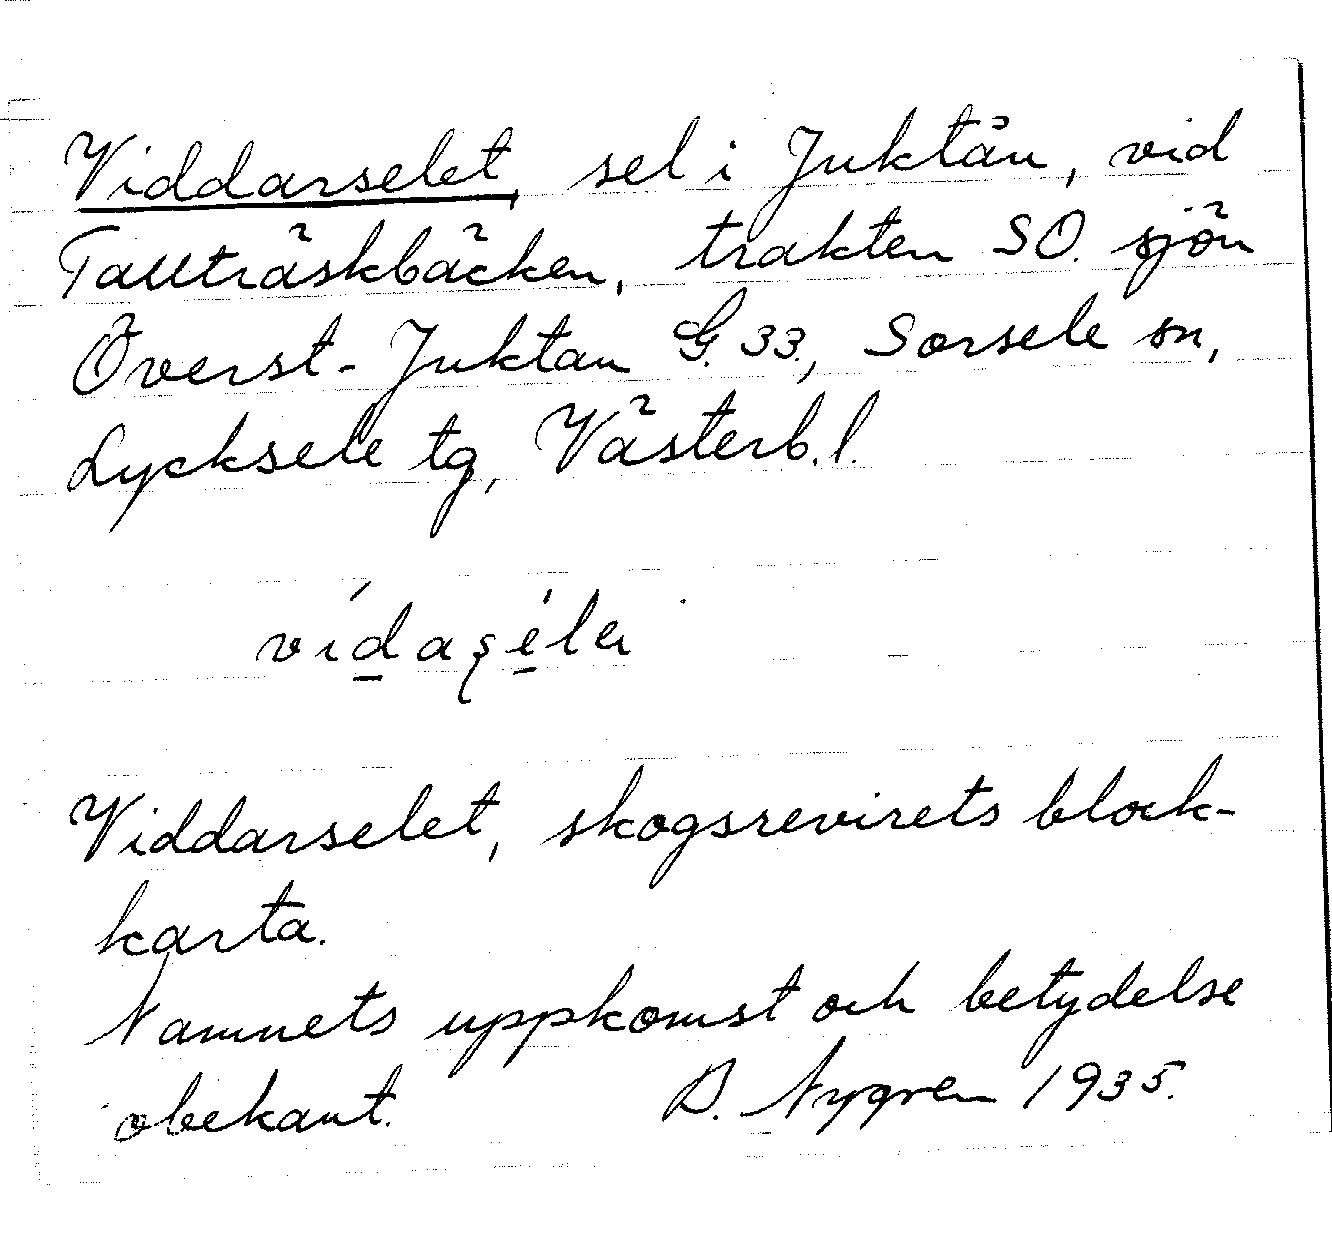 Viddarselet, sel i Juktån, vid
Tallträskbäcken, trakten SO. sjön
Överst-Juktan G. 33., Sorsele sn,
Lycksele tg, Västerb. l.
Viddarselet, skogsrevirets block-
karta.
Namnets uppkomst och betydelse
obekant. D. Nygren 1935.